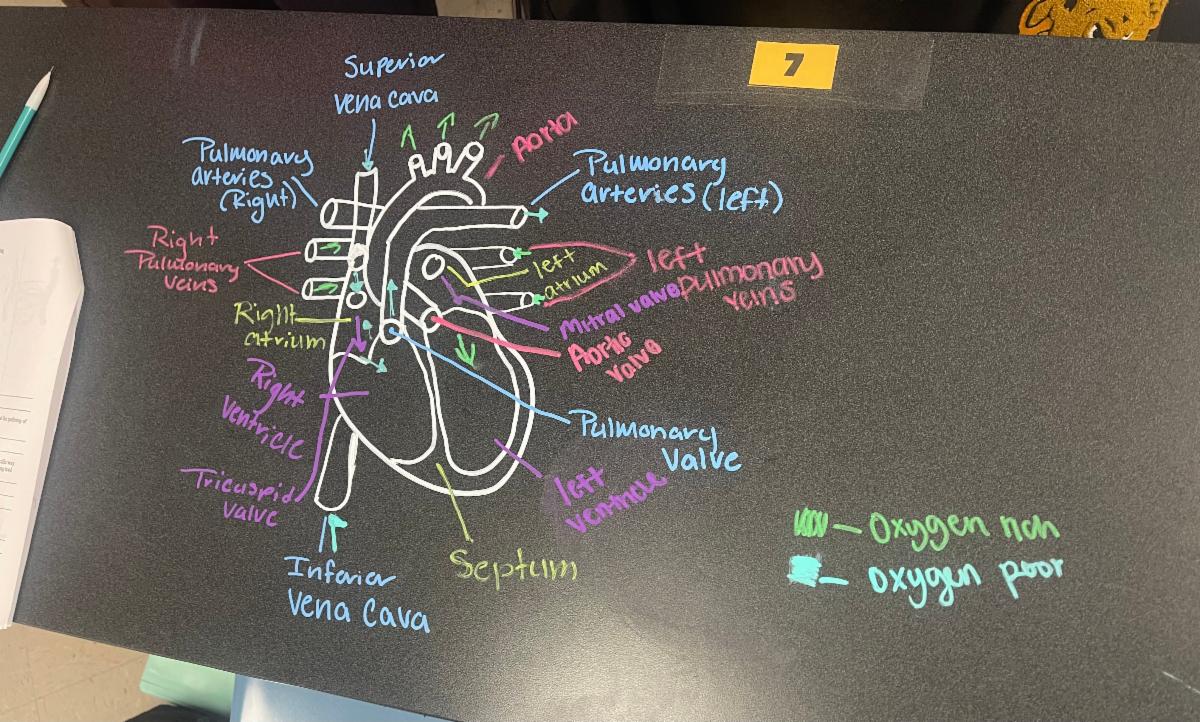 7
Superior
Vena cava
Aorta
Pulmonary
arteries
(Right)
Pulmonary
arteries (left)
Right
Pulmonary
veins
left
atrium
left
Pulmonary
veins
Mitral valve
Right
atrium
Aortic
Valve
Right
Ventricle
Pulmonary
Valve
Tricuspid
valve
left
ventricle
Septum
Inferior
Vena Cava
Oxygen rich
Oxygen poor